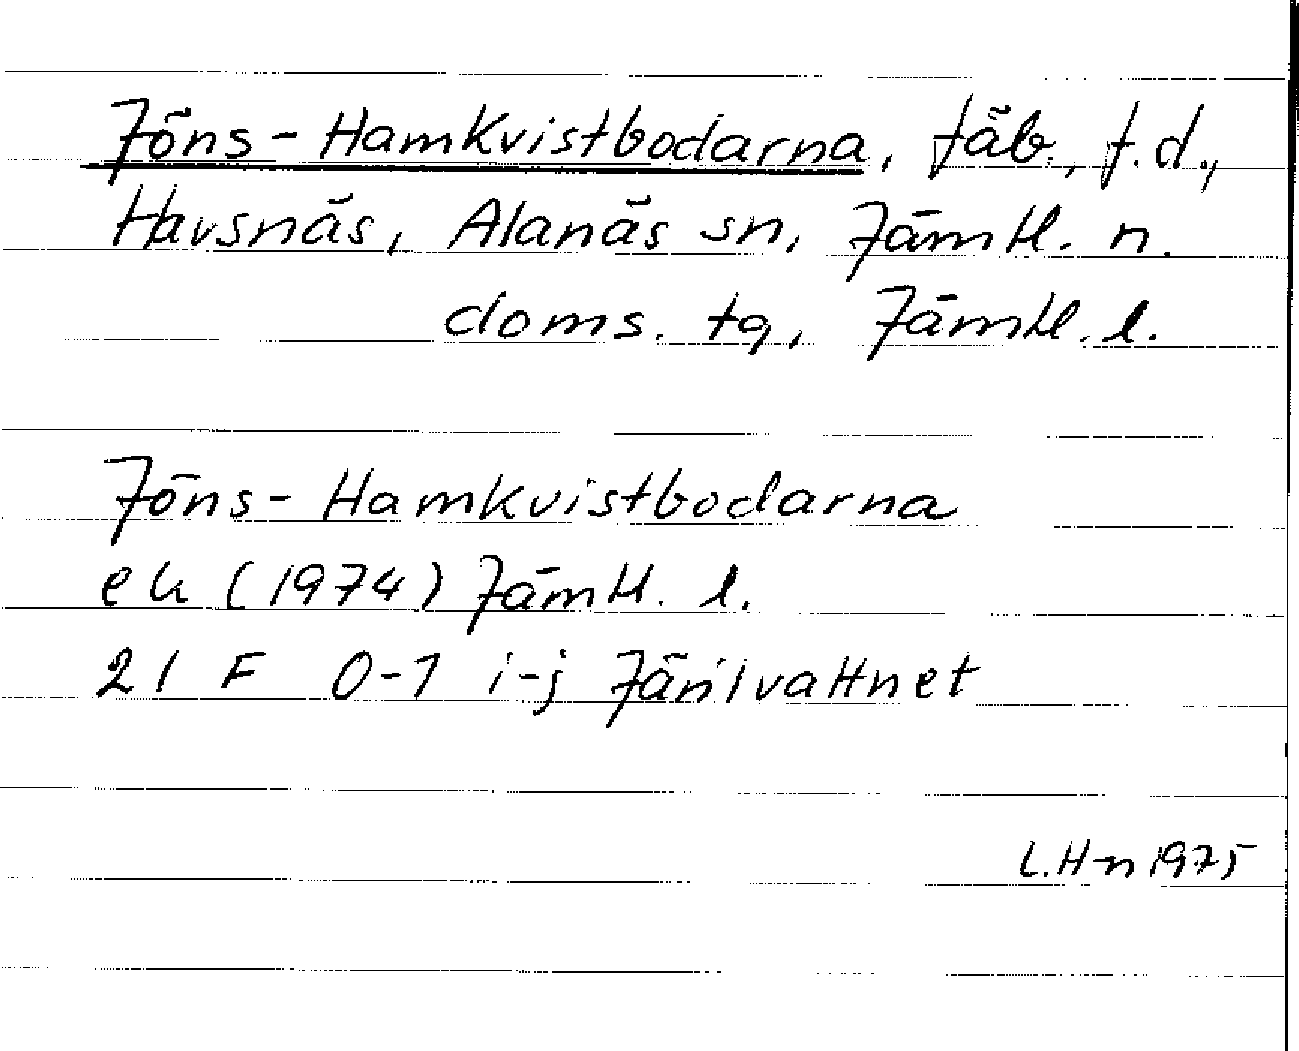 Jöns-Hamkvistbodarna, fäb., f.d.,
Havsnäs, Alanäs sn, Jämtl. n.
doms. tg, Jämtl. l.
Jöns-Hamkvistbodarna
ek (1974) Jämtl. l.
21 F 0-1 i-j Järilvattnet
L.H-n 1975